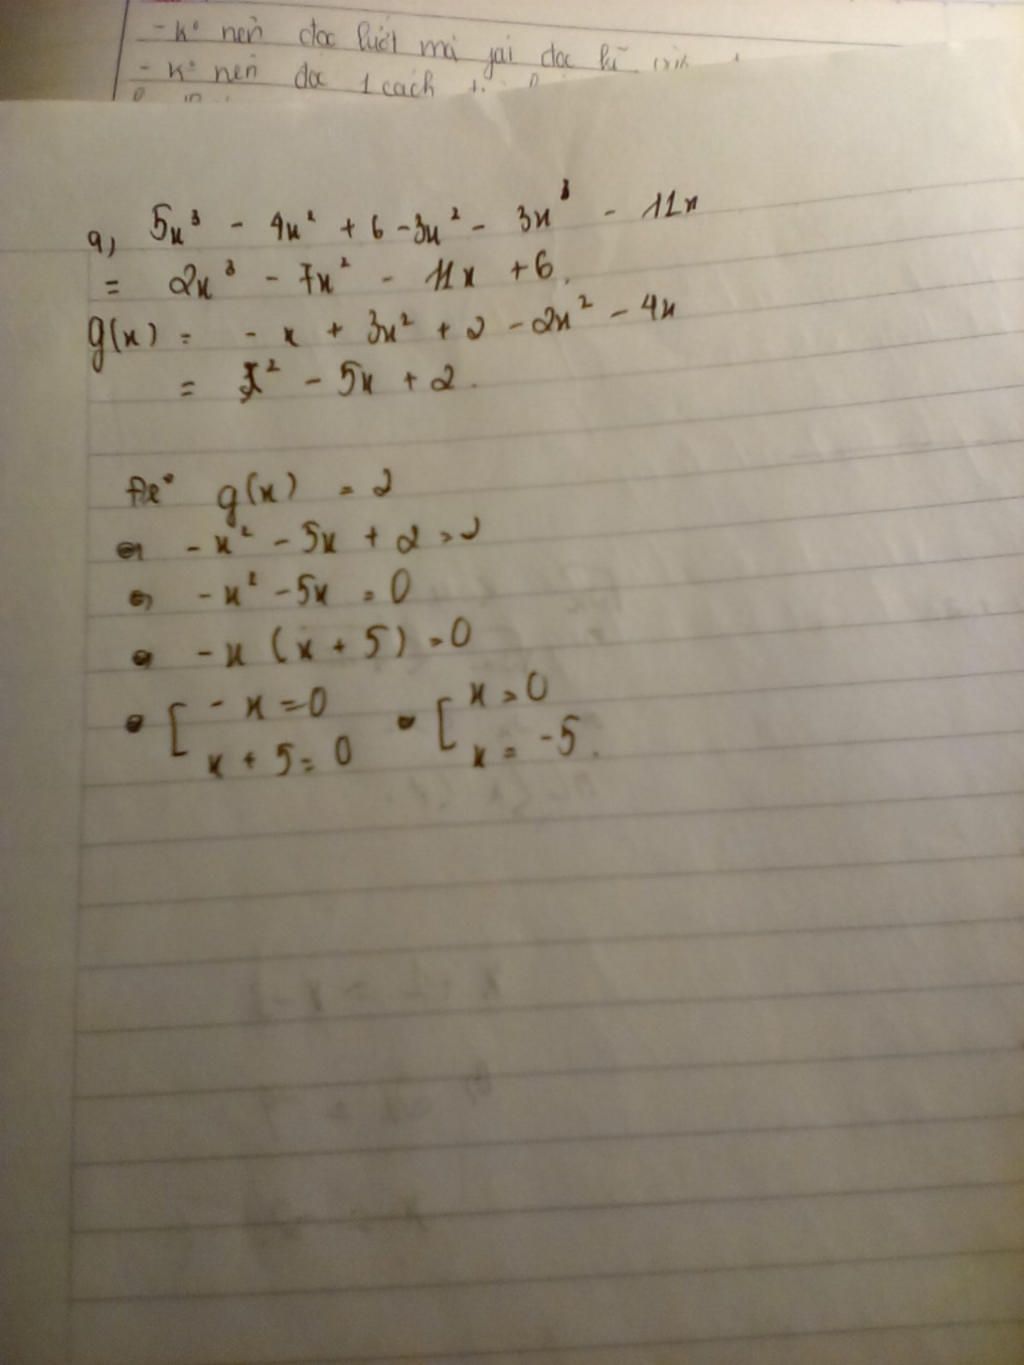 - K° nên đọc lướt mà
- K° nên đọc 1 cách
a, 5x³ - 4x² + 6 - 3x² - 3x³ - 11x
= 2x³ - 7x² - 11x + 6.
g(x) = - x + 3x² + 2 - 2x² - 4x
= x² - 5x + 2.
Để g(x) = 2
⇔ - x² - 5x + 2 = 2
⇔ - x² - 5x = 0
⇔ - x (x + 5) = 0
⇔ [ - x = 0 ⇔ [ x = 0
x + 5 = 0 x = -5.